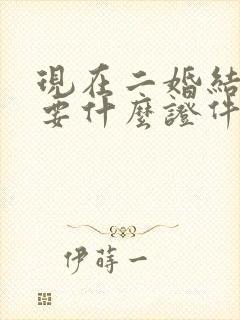 現在二婚結
要什麼證件
伊蒔一